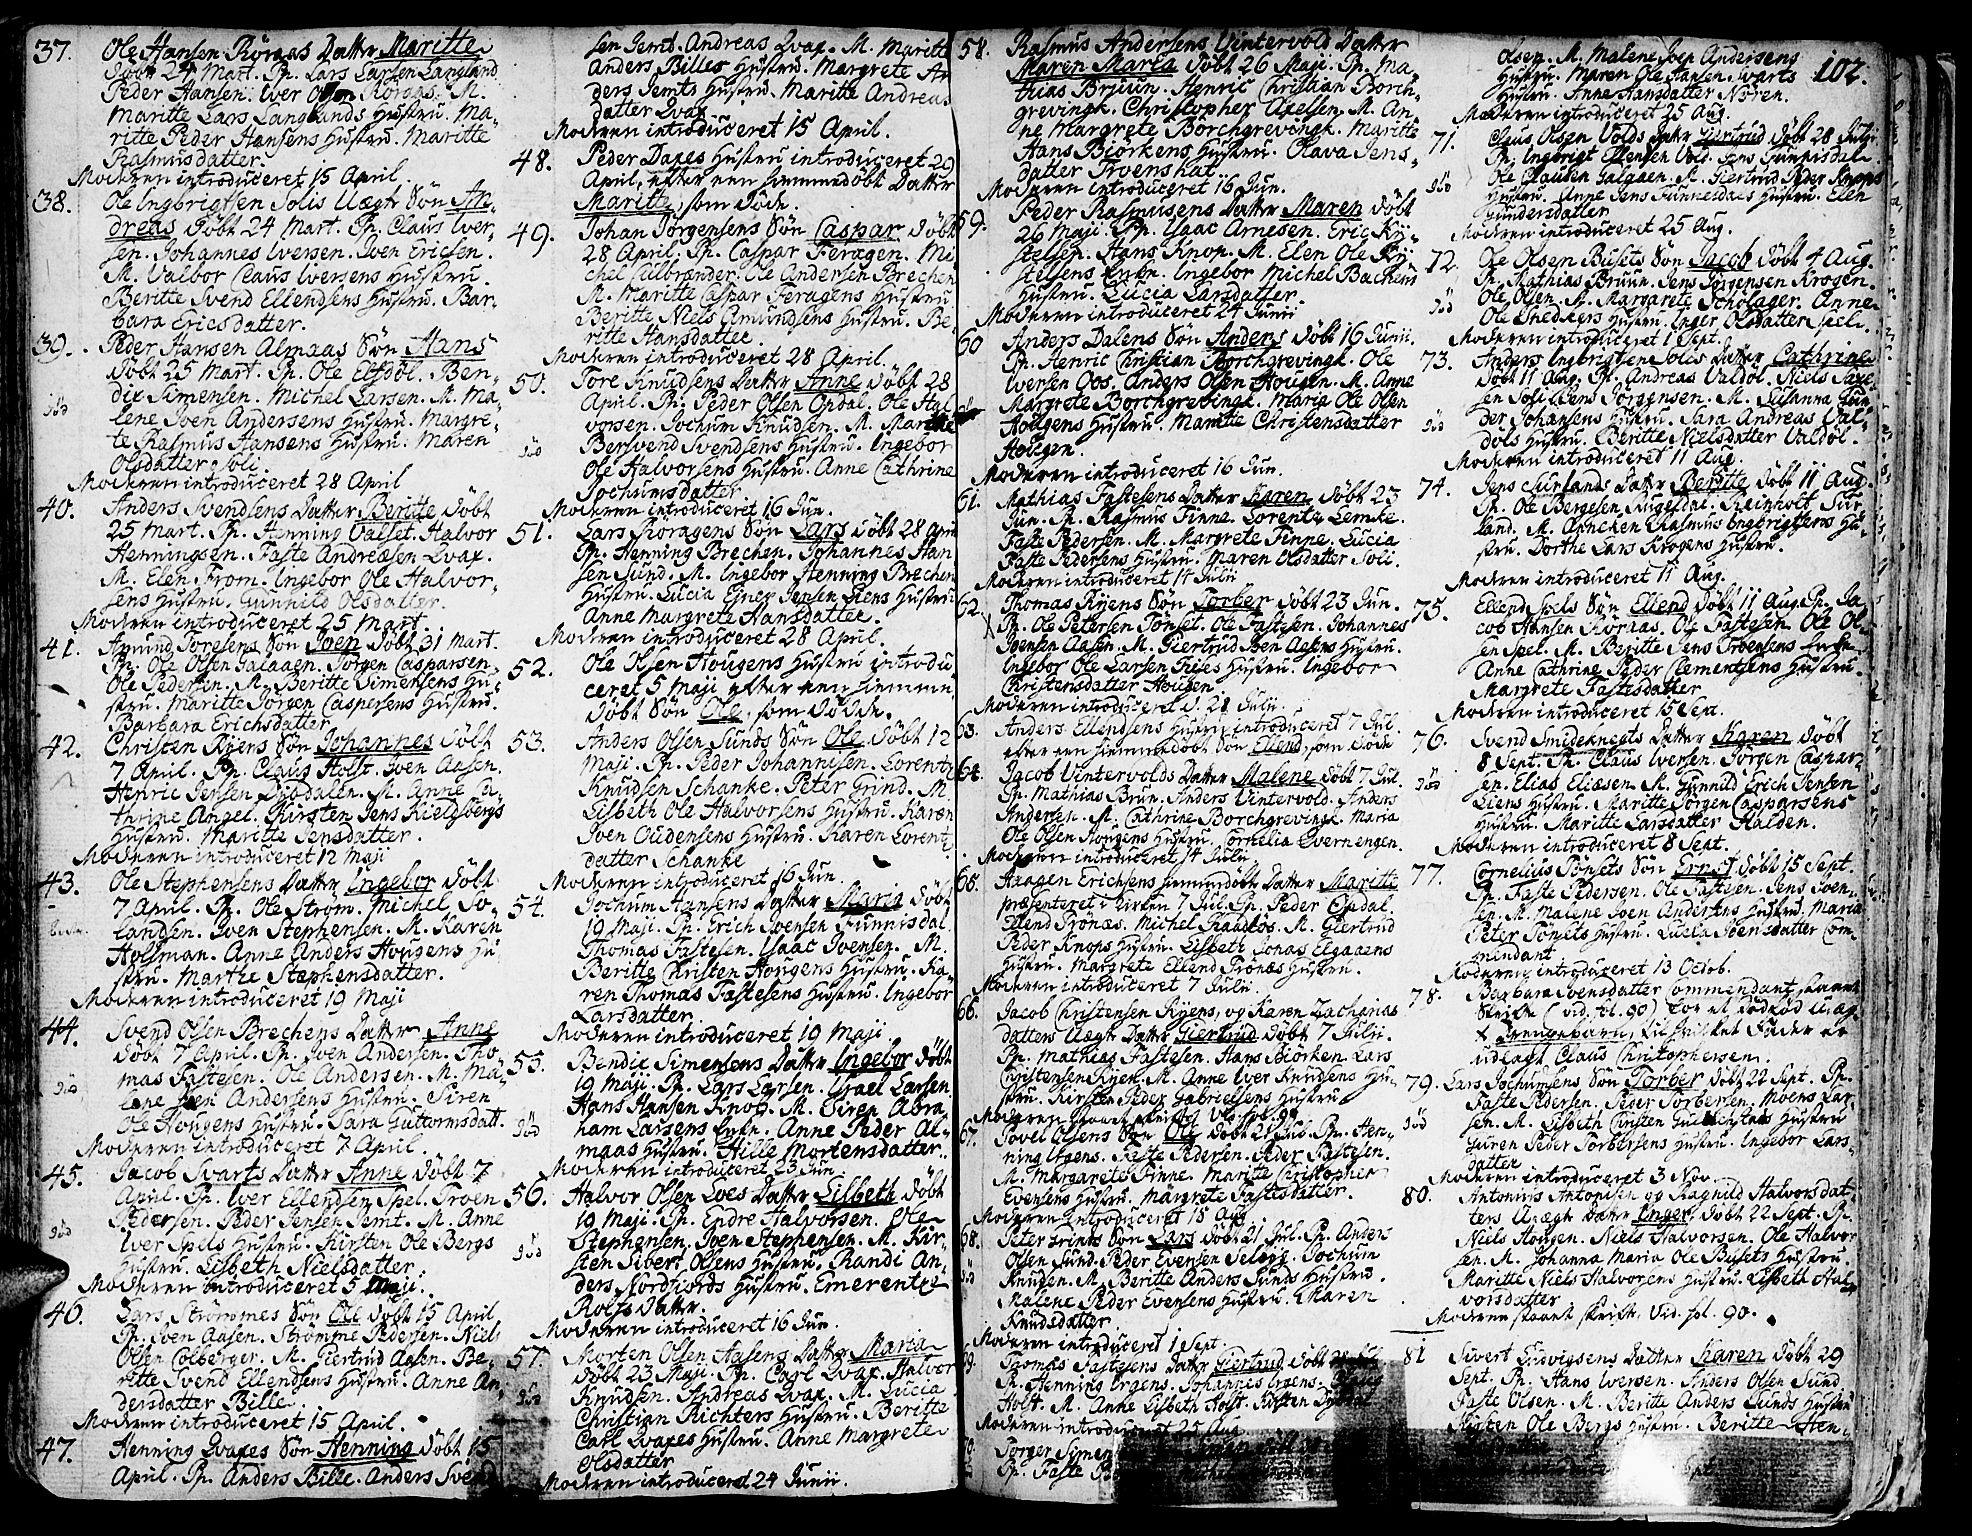 37. Ole Hansen Röraas Datter Maritte
Döbt 24 Mart. Ph. Lars Larsen Langland
Peder Hansen. Iver Olsen Röraas. M.
Maritte Lars Langlands Hustru. Ma-
ritte Peder Hansens Hustru. Maritte
Rasmusdatter.
Moderen introduceret 15 April.
38. Ole Ingbrigtsen Solis Uægte Sön An-
dreas Döbt 24 Mart. Ph. Claus Iver-
sen. Johannes Iversen. Iven Ericsen.
M. Valbor Claus Iversens Hustru.
Beritte Svend Ellendsens Hustru. Bar-
bara Ericsdatter.
39. Peder Hansen Almaas Sön Hans
Döbt 25 Mart. Ph. Ole Elfdöl. Ben-
dix Simensen. Michel Larsen. M. Ma-
lene Iven Andersens Hustru. Margre-
te Rasmus Hansens Hustru. Maren
Olsdatter Soli.
Moderen introduceret 28 April
40. Anders Svendsens Datter Beritte Döbt
25 Mart. Ph. Henning Valset. Halvor
Henningsen. Faste Andreæsen Qvax.
M. Elen From. Ingebor Ole Halvor-
sens Hustru. Gunnild Olsdatter.
Moderen introduceret 25 Mart.
41. Amund Toresens Sön Joen Döbt 31 Mart.
Ph. Ole Olsen Galaaen. Jörgen Casparsen.
Ole Pedersen. M. Beritte Simensens Hu-
stru. Maritte Jörgen Caspersens Hustru.
Barbara Erichsdatter
42. Christen Ryens Sön Johannes Döbt
7 April. Ph. Claus Holst. Iven Aasen.
Henric Jensen Dögdalen. M. Anne Ca-
thrine Angel. Kirsten Jens Kieldsbergs
Hustru. Maritte Jensdatter.
Moderen introduceret 12 Maji
43. Ole Stephensens Datter Ingebor Döbt
7 April. Ph. Ole Ström. Michel Sö-
landen. Iven Stephensen. M. Karen
Holsman. Anne Anders Hougens Hu-
stru. Marthe Stephensdatter.
Moderen introduceret 19 Maji
44. Svend Olsen Brechens Datter Anne
Döbt 7 April. Ph. Iven Andersen. Tho-
mas Fastesen. Ole Andersen. M. Ma-
lene Iven Andersens Hustru. Siren
Ole Hougens Hustru. Sara Guttormsdatt.
Moderen introduceret 7 April.
45. Jacob Svarts Datter Anne Döbt 7
April. Ph. Iver Ellendsen Spel. Troen
Pedersen. Peder Jensen Jemt. M. Anne
Iver Spels Hustru. Kirsten Ole Bergs
Hustru. Lisbeth Nielsdatter.
Moderen introduceret 5 Maji.
46. Lars Strömmes Sön Ole Döbt 15 April
Ph. Iven Aasen. Strömme Pedersen. Niels
Olsen Colberger. M. Giertrud Aasen. Be-
ritte Svend Ellendsens Hustru. Anne An-
dersdatter Bille.
Moderen introduceret 15 April.
47. Henning Qvaxes Sön Henning Döbt 15
April. Ph. Anders Bille. Anders Svend
sen Jemt. Andreas Qvax. M. Maritte
Anders Billes Hustru. Margrete An-
ders Jemts Hustru. Maritte Andreas
datter Qvax.
Moderen introduceret 15 April.
48. Peder Daxes Hustru introduceret 29
April, efter een hiemmedöbt Datter
Maritte, som Döde.
49. Johan Jörgensens Sön Caspar Döbt
28 April. Ph. Caspar Feragen. Mi-
chel Ole Andersen Brechen
M. Maritte Caspar Feragens Hustru
Beritte Niels Amundsens Hustru. Be-
ritte Hansdatter.
Moderen introduceret 28 April.
50. Tore Knudsens Datter Anne Döbt 28
April. Ph. Peder Olsen Opdal. Ole Hal
vorsen. Jochum Knudsen. M. Marthe
Bersvend Svendsens Hustru. Ingebor
Ole Halvorsens Hustru. Anne Cathrine
Jochumsdatter
Moderen introduceret 16 Jun.
51. Lars Röragens Sön Lars Döbt 28 April
Ph. Henning Brechen. Johannes Han
sen Sund. M. Ingebor Henning Brechen
Hustru. Lucia Ejner Jensen Liens Hustru
Anne Margrete Hansdatter.
Moderen introduceret 28 April.
52. Ole Olsen Hougens Hustru introdu
ceret 5 Maji efter een hiemme
döbt Sön Ole, som Döde.
53. Anders Olsen Sunds Sön Ole Döbt 12
Maji. Ph. Peder Johannisen. Lorentz
Knudsen Schanke. Peter Grind. M
Lisbeth Ole Halvorsens Hustru. Karen
Iven Oudensens Hustru. Karen Lorentz
datter Schanke
Moderen introduceret 16 Jun.
54. Jochum Hansens Datter Maria Döbt
19 Maji. Ph. Erich Ivensen Funnisdal
Thomas Fastesen. Isaac Ivensen. M.
Beritte Christen Hougens Hustru. Ka-
ren Thomas Fastesens Hustru. Ingebor
Larsdatter.
Moderen introduceret 19 Maji
55. Bendix Simensens Datter Ingebor Döbt
19 Maji. Ph. Lars Larsen. Israel Larsen
Hans Hansen Knop. M. Siren Abra-
ham Larsens Enke. Anne Peder Al-
maas Hustru. Hille Mortensdatter.
Moderen introduceret 23 Jun.
56. Halvor Olsen Loes Datter Lisbeth Döbt
19 Maji. Ph. Endre Halvorsen. Ole
Stephensen. Iven Stephensen. M. Kir-
sten Sivert Olsens Hustru. Randi An-
ders Nordfiords Hustru. Emerentze
Rolfs Datter.
Moderen introduceret 16 Jun.
57. Morten Olsen Aasens Datter Maria
Döbt 23 Maji. Ph. Carl Qvax. Halvor
Knudsen. Andreas Qvax. M. Lucia
Christian Richters Hustru. Beritte
Carl Qvaxes Hustru. Anne Margrete
Olsdatter
Moderen introduceret 24 Junii.
58. Rasmus Andersens Vintervold Datter
Maren Maria Döbt 26 Maji. Ph. Ma-
thias Bruun. Henric Christian Borch-
grevingk. Christopher Axelsen. M. An-
ne Margrete Borchgrevingk. Maritte
Hans Biörkens Hustru. Olava Jens-
datter Troenshat.
Moderen introduceret 16 Jun.
59. Peder Rasmusens Datter Maren Döbt
26 Maji. Ph. Isaac Arnesen. Eric Ky-
stelsen. Hans Knop. M. Elen Ole Ky-
stelsens Enke. Ingebor Michel Backens
Hustru. Lucia Larsdatter.
Moderen introduceret 24 Junii
60 Anders Dalens Sön Anders Döbt 16 Junii.
Ph. Henric Christian Borchgrevingk. Ole
Iversen Oos. Anders Olsen Hougen. M. Anne
Margrete Borchgrevingk. Maria Ole Olsen
Hougens Hustru. Maritte Christensdatter
Hougen.
Moderen introduceret 16 Jun.
61. Mathias Fastesens Datter Karen Döbt 23
Jun. Ph. Rasmus Finne. Lorentz Lemke.
Faste Pedersen. M. Margrete Finne. Lucia
Faste Pedersens Hustru. Maren Olsdatter Soli.
Moderen introduceret 14 Julii
62. Thomas Ryens Sön Torber Döbt 23 Jun.
Ph. Ole Petersen Tönset. Ole Fastesen. Johannes
Ivensen Aasen. M. Giertrud Iven Aasens Hustru.
Ingebor Ole Larsen Hustru. Ingebor
Christensdatter Hougen.
Moderen introduceret d. 28 Julii.
63. Anders Ellendsens Hustru introduceret 7 Jul.
efter een hiemmedöbt Sön Ellend, som Döde
64. Jacob Vintervolds Datter Malene Döbt 7 Jul.
Ph. Mathias Brun. Anders Vintervold. Anders
Andersen. M. Cathrine Borchgrevingk. Maria
Ole Olsen Hougens Hustru. Cornelia Evernengen.
Moderen introduceret 14 Julii.
65. Aaagen Erichsens hiemmedöbt Datter Maritte
præsenteret i Kirken 7 Jul. Ph. Peder Opdal
Ellend Trönæs. Michel Kaadtös. M. Giertrud
Peder Knops Hustru. Lisbeth Jonas Elgaaens
Hustru. Margrete Ellend Trönæs Hustru.
Moderen introduceret 7 Julii.
66. Jacob Christensen Ryens, og Karen Zacharias
datters Uægte Datter Giertrud Döbt 7 Julii.
Ph. Mathias Fastesen. Hans Biörken. Lars
Christensen Ryen. M. Anne Iver Knudsens Hu-
stru. Kirsten Peder Gabrielsens Hustru
Moderen stoed skrift Vid. fol. 99
67. Jovel Olsens Sön Ole Döbt 21 Jul. Ph. Hen-
ning Irgens. Faste Pedersen. Peder Fastesen.
M. Margarete Finne. Maritte Christopher
Evensens Hustru. Margrete Fastesdatter.
Moderen introduceret 15 Aug.
68. Peter Sön Lars Döbt 21 Jul. Ph. Anders
Olsen Sund. Peder Evensen Selboy. Jochum
Knudsen. M. Beritte Anders Sunds Hustru.
Malene Peder Evensens Hustru. Maren
Knudsdatter
Moderen introduceret 1 Sept.
69. Thomas Fastesens Datter Giertrud Döbt 28
Ph. Henning Irgens. Johannes Irgens.
Holst. M. Anne Lisbeth Holst. Kirsten
Moderen introduceret 25 Aug
70. Törger Simen
Ph. Faste
102.
Olsen. M. Malene Iven Andersens
Hustru. Maren Ole Hansen Svarts
Hustru. Anne Hansdatter Nören.
Moderen introduceret 25 Aug.
71. Claus Olsen Volds Datter Giertrud Döbt 28 Julii
Ph. Ingbrigt Ellensen Vold. Jens Funnisdal
Ole Clausen Galaaen. M. Giertrud Peder Knops
Hustru. Anne Jens Funnesdals Hustru. Elen
Gundersdatter
Moderen introduceret 25 Aug.
72. Ole Olsen Busets Sön Jacob Döbt 4 Aug.
Ph. Mathias Bruun. Jens Jörgensen Krogen.
Ole Olsen. M. Margarete Scholager. Anne
Ole Snedkers Hustru. Inger Olsdatter Spel.
Moderen introduceret 1 Sept.
73. Anders Ingbrigtsens Solis Datter Cathrine
Döbt 11 Aug. Ph. Andreas Valdöl. Niels
en Soli. Jörgensen. M. Susanna
der Johansens Hustru. Sara Andreas Val-
döls Hustru. Beritte Nielsdatter Valdöl.
Moderen introduceret 11 Aug.
74. Jens Surlands Datter Beritte Döbt 11 Aug.
Ph. Ole Bergesen Rugesdal. Reinholt Sur-
land. M. Anneken Rasmus Engbrigtsens Hu-
stru. Dorthe Lars Krogens Hustru.
Moderen introduceret 11 Aug.
75. Ellend Spels Sön Ellend Döbt 11 Aug. Ph. Ja-
cob Hansen Röraas. Ole Fastesen. Ole Ol-
sen Spel. M. Beritte Jens Troensens Enke.
Anne Cathrine Peder Clementsens Hustru.
Margrete Fastesdatter
Moderen introduceret 15 Sept.
76. Svend Smideknegts Datter Karen Döbt
8 Sept. Ph. Claus Iversen. Jörgen Caspar-
sen. Elias Eliæsen. M. Gunnild Erich Jensen
Liens Hustru. Maritte Jörgen Casparsens
Hustru. Maritte Larsdatter Halden.
Moderen introduceret 8 Sept.
77. Cornelius Tönsets Sön Ernst Döbt 15 Sept.
Ph. Faste Pedersen. Ole Fastesen. Jens Iven-
sen. M. Malene Iven Andersens Hustru. Maria
Peter Tönsets Hustru. Lucia Ivensdatter Com-
mendant
Moderen introduceret 13 Octob.
78. Barbara Ivensdatter Commendant stoed
Skrift (vid. fol. 90) for et dödfød Uæg-
te Drengebarn, til hvilket Fader er
udlagt Claus Christophersen.
79. Lars Jochumsens Sön Torber Döbt 22 Sept. Ph.
Faste Pedersen. Peder Torbersen. Moens Lar-
sen. M. Lisbeth Christen Hustru
Siren Peder Torbersens Hustru. Ingebor Lars-
datter
Moderen introduceret 3 Nov.
80. Antonius Antonisen og Ragnild Halvorsdat-
ters Uægte Datter Inger Döbt 22 Sept. Ph.
Niels Hougen. Niels Halvorsen. Ole Halvor
sen. M. Johanna Maria Ole Busets Hustru
Marette Niels Halvorsens Hustru. Lisbeth Hal-
vorsdatter
Moderen stoed skrift. Vid. fol. 90.
81 Sivert Ludvigsens Datter Karen Döbt 29
Sept. Ph. Hans Iversen. Anders Olsen Sund
Faste Olsen. M. Beritte Anders Sunds Hustru
Kirsten Ole Bergs Hustru. Beritte Hen-